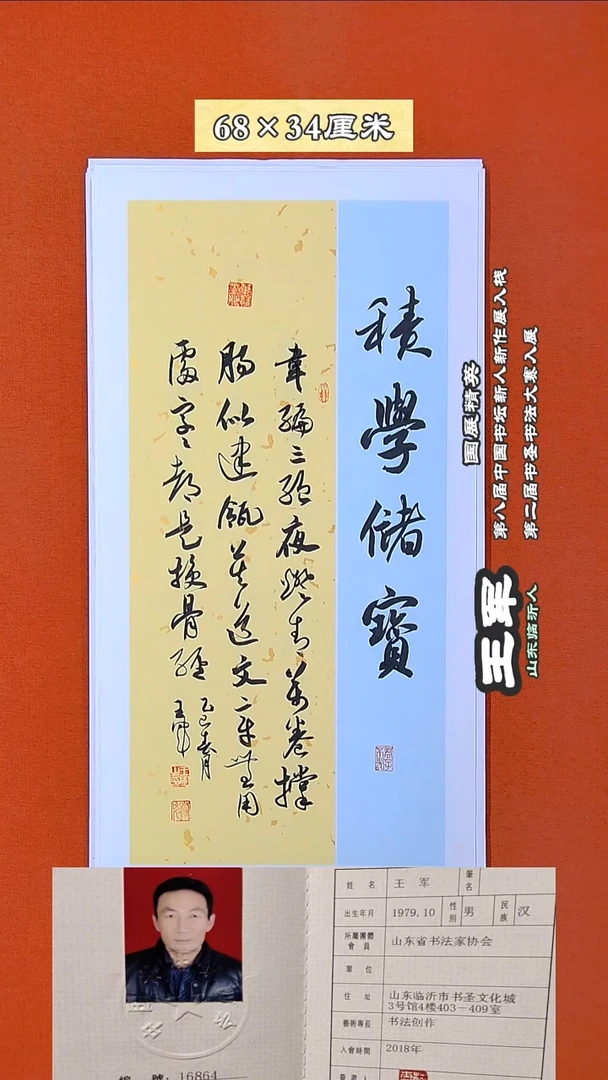 68×34厘米
積學儲寶
韋編三絕夜燈青萬卷撐
腸似建瓴莫道文章無用
處字々都是換骨經
乙巳春月
王軍
国展精英
第八届中国书坛新人新作展入栈
第二届书圣书法大赛入展
王军
山东临沂人
姓 名 王 军 筆名
出生年月 1979.10 性別 男 民族 汉
所屬團體會員 山东省书法家协会
單 位
住 址 山东临沂市书圣文化城
3号馆4楼403－409室
藝術專長 书法创作
入會時間 2018年
編 號：16864